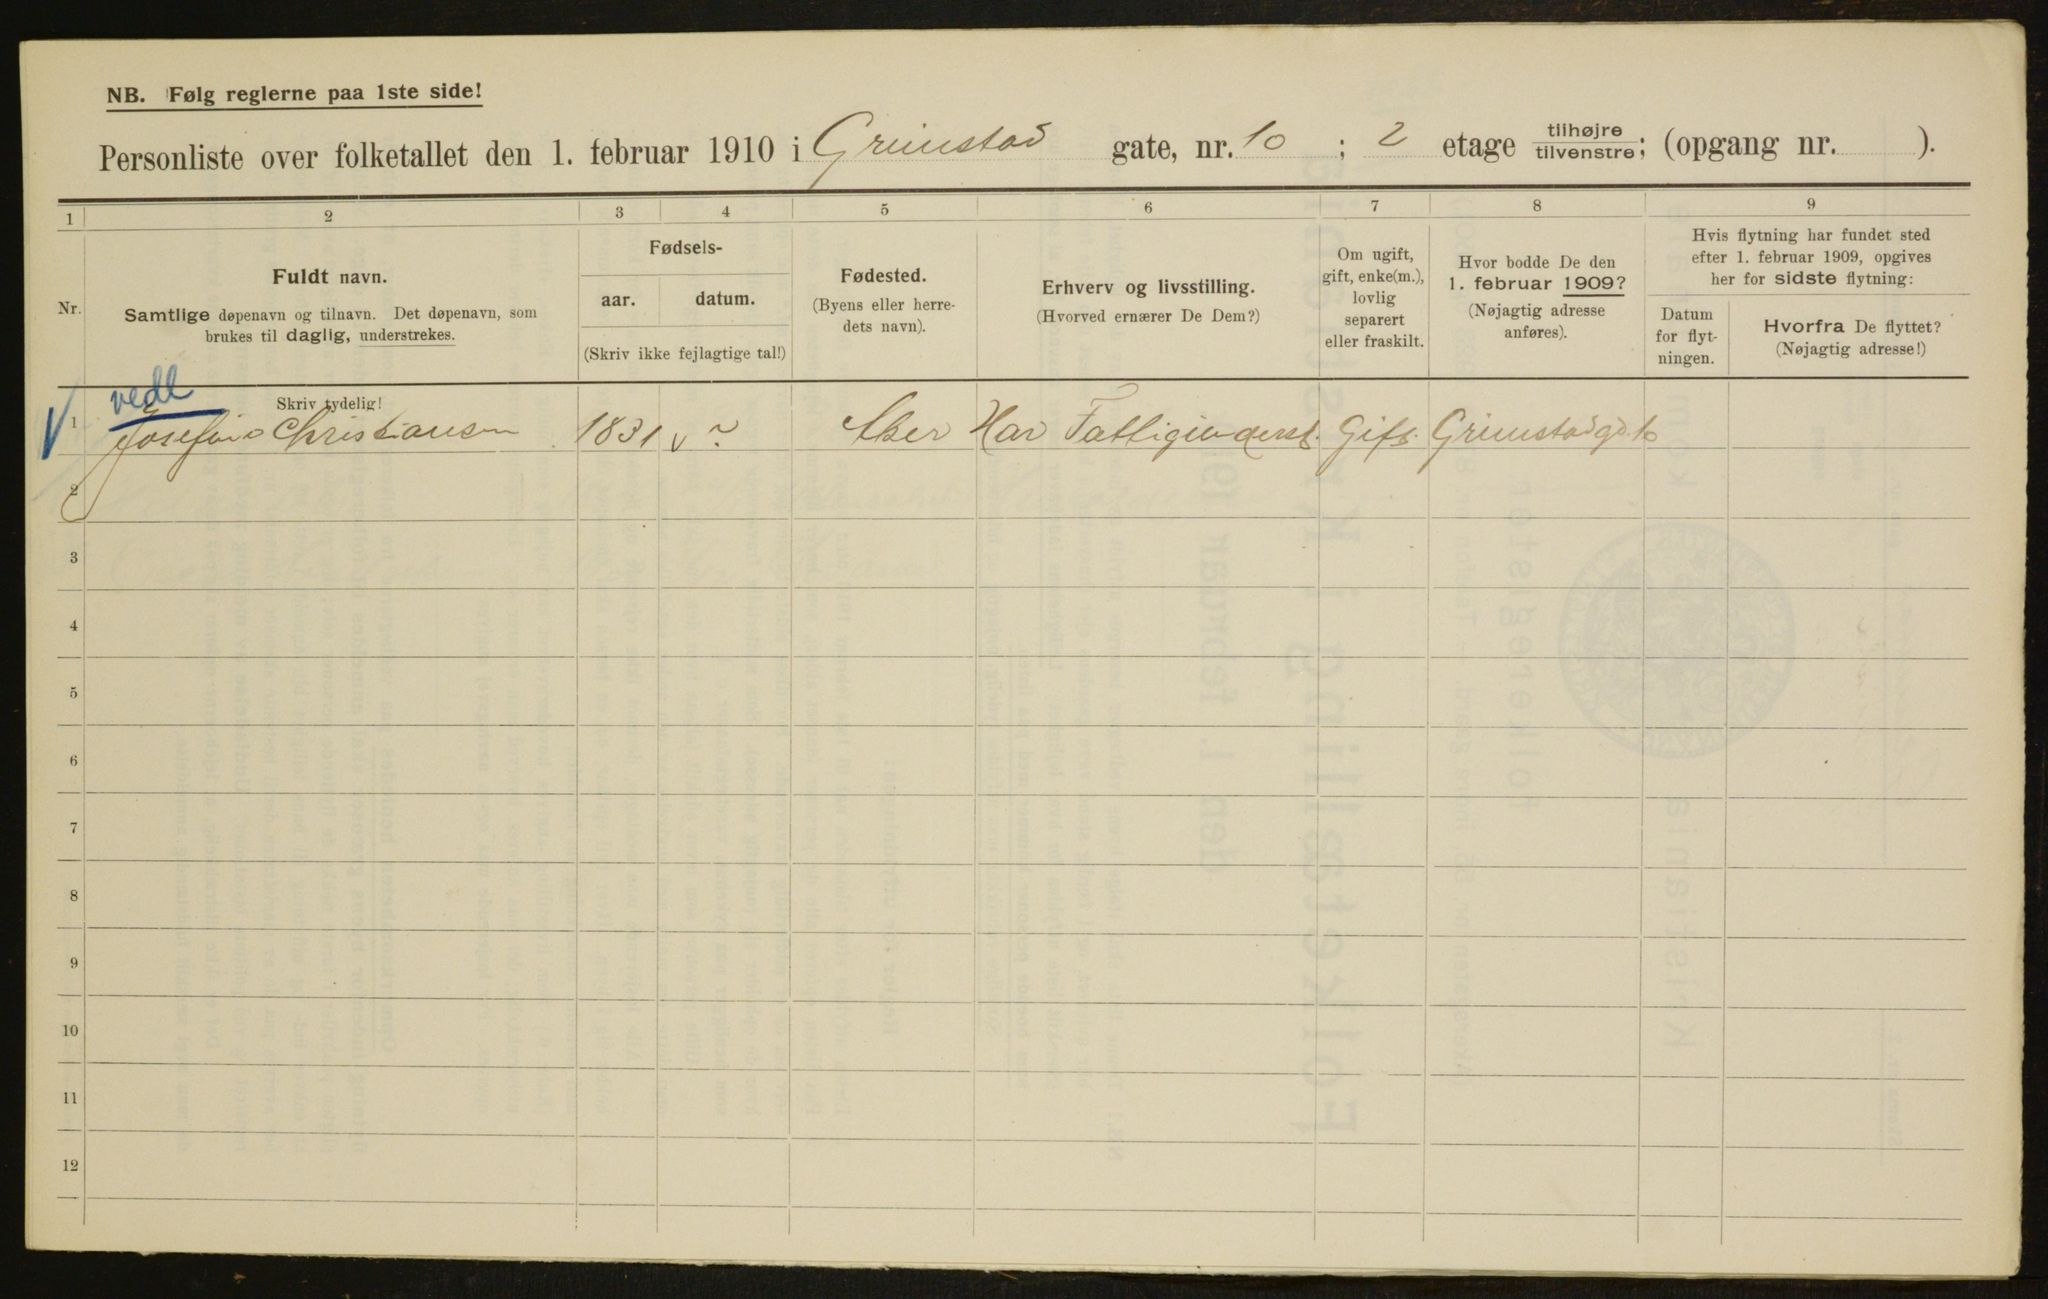 NB. Følg reglerne paa 1ste side!
Personliste over folketallet den 1. februar 1910 i Grimstad gate, nr. 10 ; 2 etage tilhøjre tilvenstre; (opgang nr. ).
1 2 3 4 5 6 7 8 9
Nr.
Fuldt navn.
Samtlige døpenavn og tilnavn. Det døpenavn, som
brukes til daglig, understrekes.
Fødsels-
aar. datum.
(Skriv ikke fejlagtige tal!)
Fødested.
(Byens eller herre-
dets navn).
Erhverv og livsstilling.
(Hvorved ernærer De Dem?)
Om ugift,
gift, enke(m.),
lovlig
separert
eller fraskilt.
Hvor bodde De den
1. februar 1909?
(Nøjagtig adresse
anføres).
Hvis flytning har fundet sted
efter 1. februar 1909, opgives
her for sidste flytning:
Datum
for flyt-
ningen.
Hvorfra De flyttet?
(Nøjagtig adresse!)
vedl
Skriv tydelig!
1 Josefine Christiansen 1831 v ? Aker Har Fattigunderst. Gift. Grimstadgd. 10
2
3
4
5
6
7
8
9
10
11
12